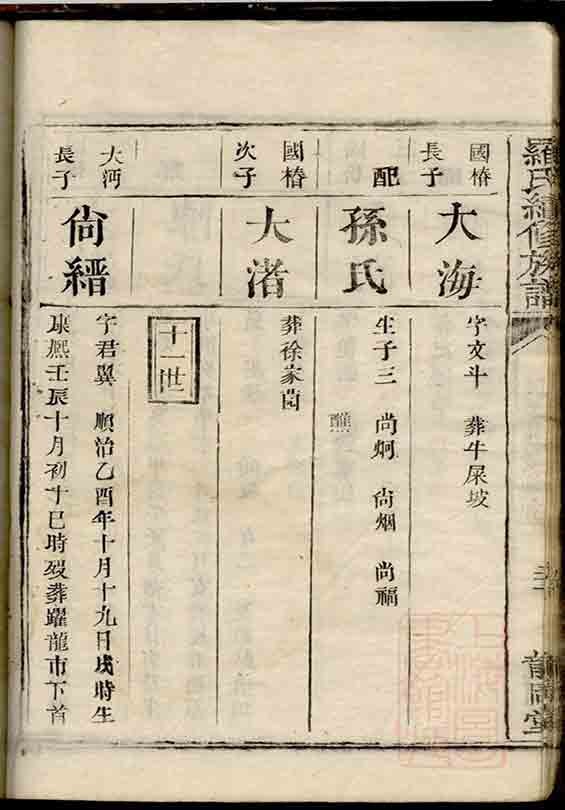 羅氏續修族譜
國椿
長子
大海
字文斗 葬牛屎坡
配
孫氏
生子三 尚炯 尚烟 尚福
醮
國椿
次子
大濳
葬徐家𡩋
十一世
大沔
長子
尚縉
字君翼 順治乙酉年十月十九日戌時生
康熙壬辰十月初十巳時歿葬躍龍市下首